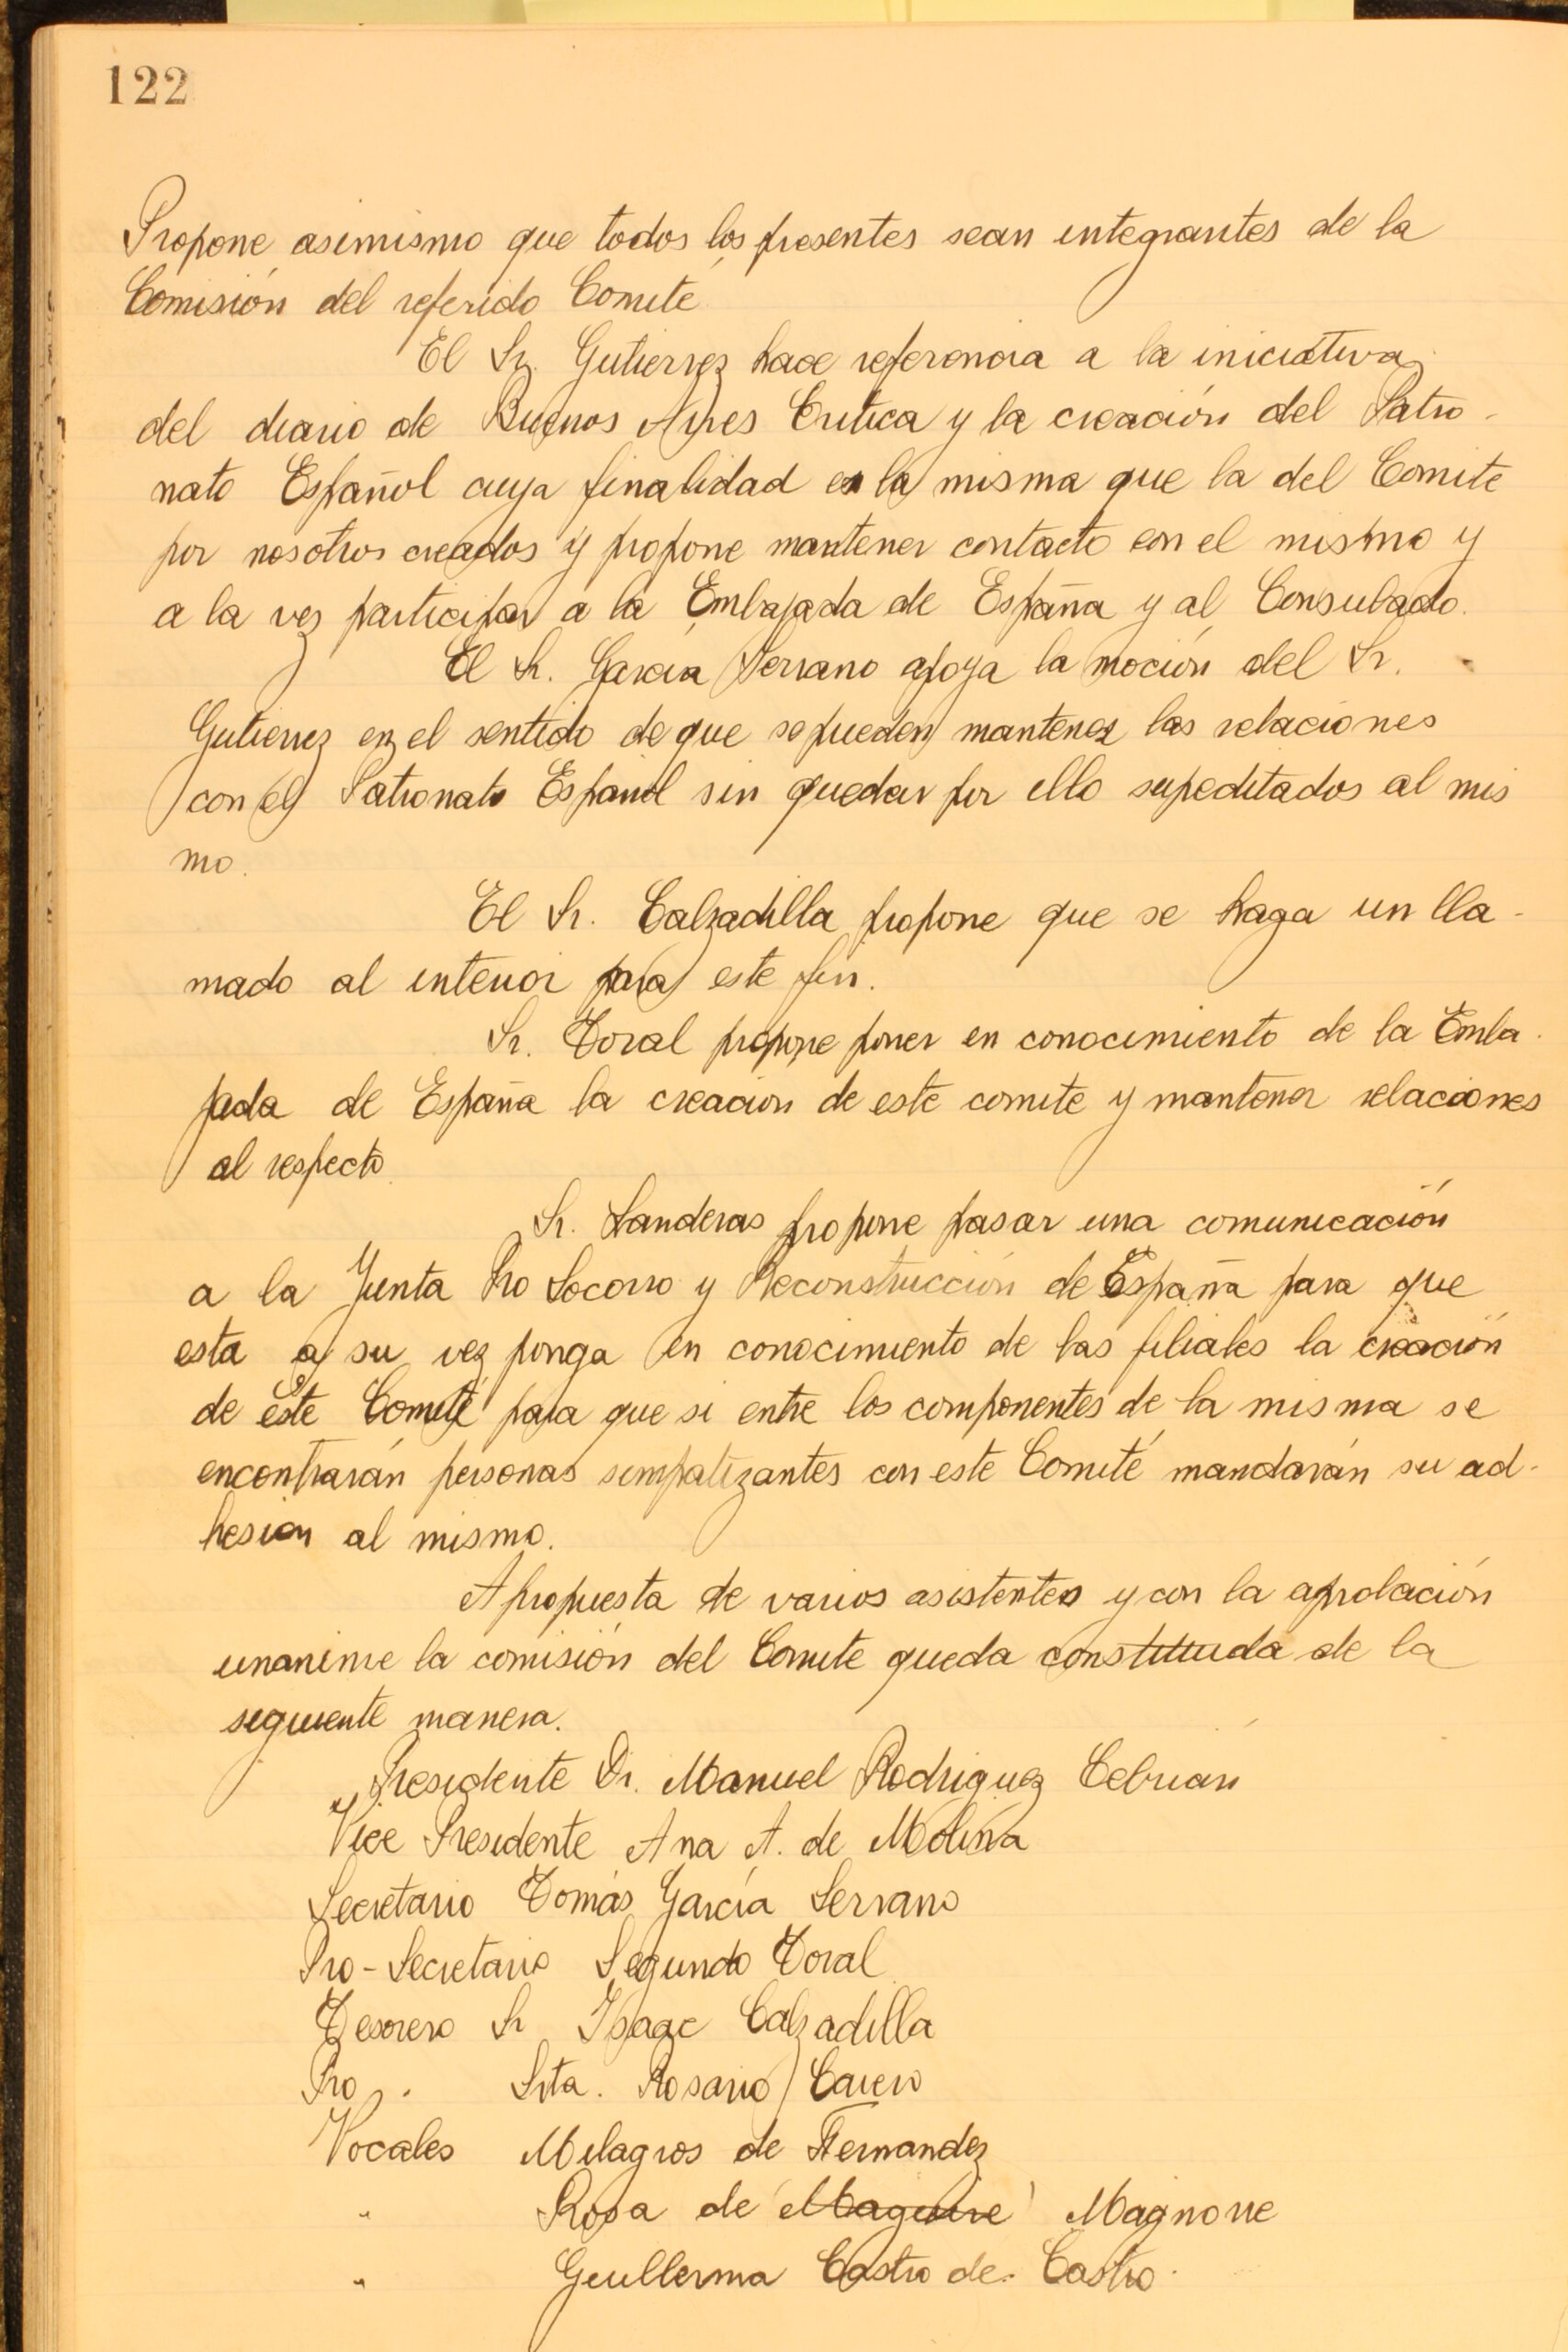 122
Propone asimismo que todos los presentes sean integrantes de la
Comisión del referido Comité
El Sr. Gutierrez hace referencia a la iniciativa
del diario de Buenos Ayres Critica y la creación del Patro-
nato Español cuya finalidad es la misma que la del Comite
por nosotros creados y propone mantener contacto con el mismo y
a la vez participar a la Embajada de España y al Consulado.
El Sr. García Serrano apoya la moción del Sr.
Gutierrez en el sentido de que se pueden mantener las relaciones
con el Patronato Español sin quedar por ello supeditados al mis
mo.
El Sr. Calzadilla propone que se haga un lla-
mado al interior para este fin.
Sr. Toral propone poner en conocimiento de la Emba-
jada de España la creacion de este comite y mantener relaciones
al respecto.
Sr. Landeras propone pasar una comunicación
a la Junta Pro Socorro y Reconstrucción de España para que
esta a su vez ponga en conocimiento de las filiales la creación
de este Comité para que si entre los componentes de la misma se
encontrarán personas simpatizantes con este Comité mandarán su ad-
hesion al mismo.
A propuesta de varios asistentes y con la aprobación
unanime la comisión del Comite queda constituida de la
siguiente manera.
Presidente Dr. Manuel Rodriguez Cebrián
Vice Presidente Ana A. de Molina
Secretario Tomás García Serrano
Pro-Secretario Segundo Toral
Tesorero Sr Isaac Calzadilla
Pro " Srta. Rosario Carero
Vocales Milagros de Fernandez
" Rosa de Maguire Magnone
" Guillerma Castro de Castro.